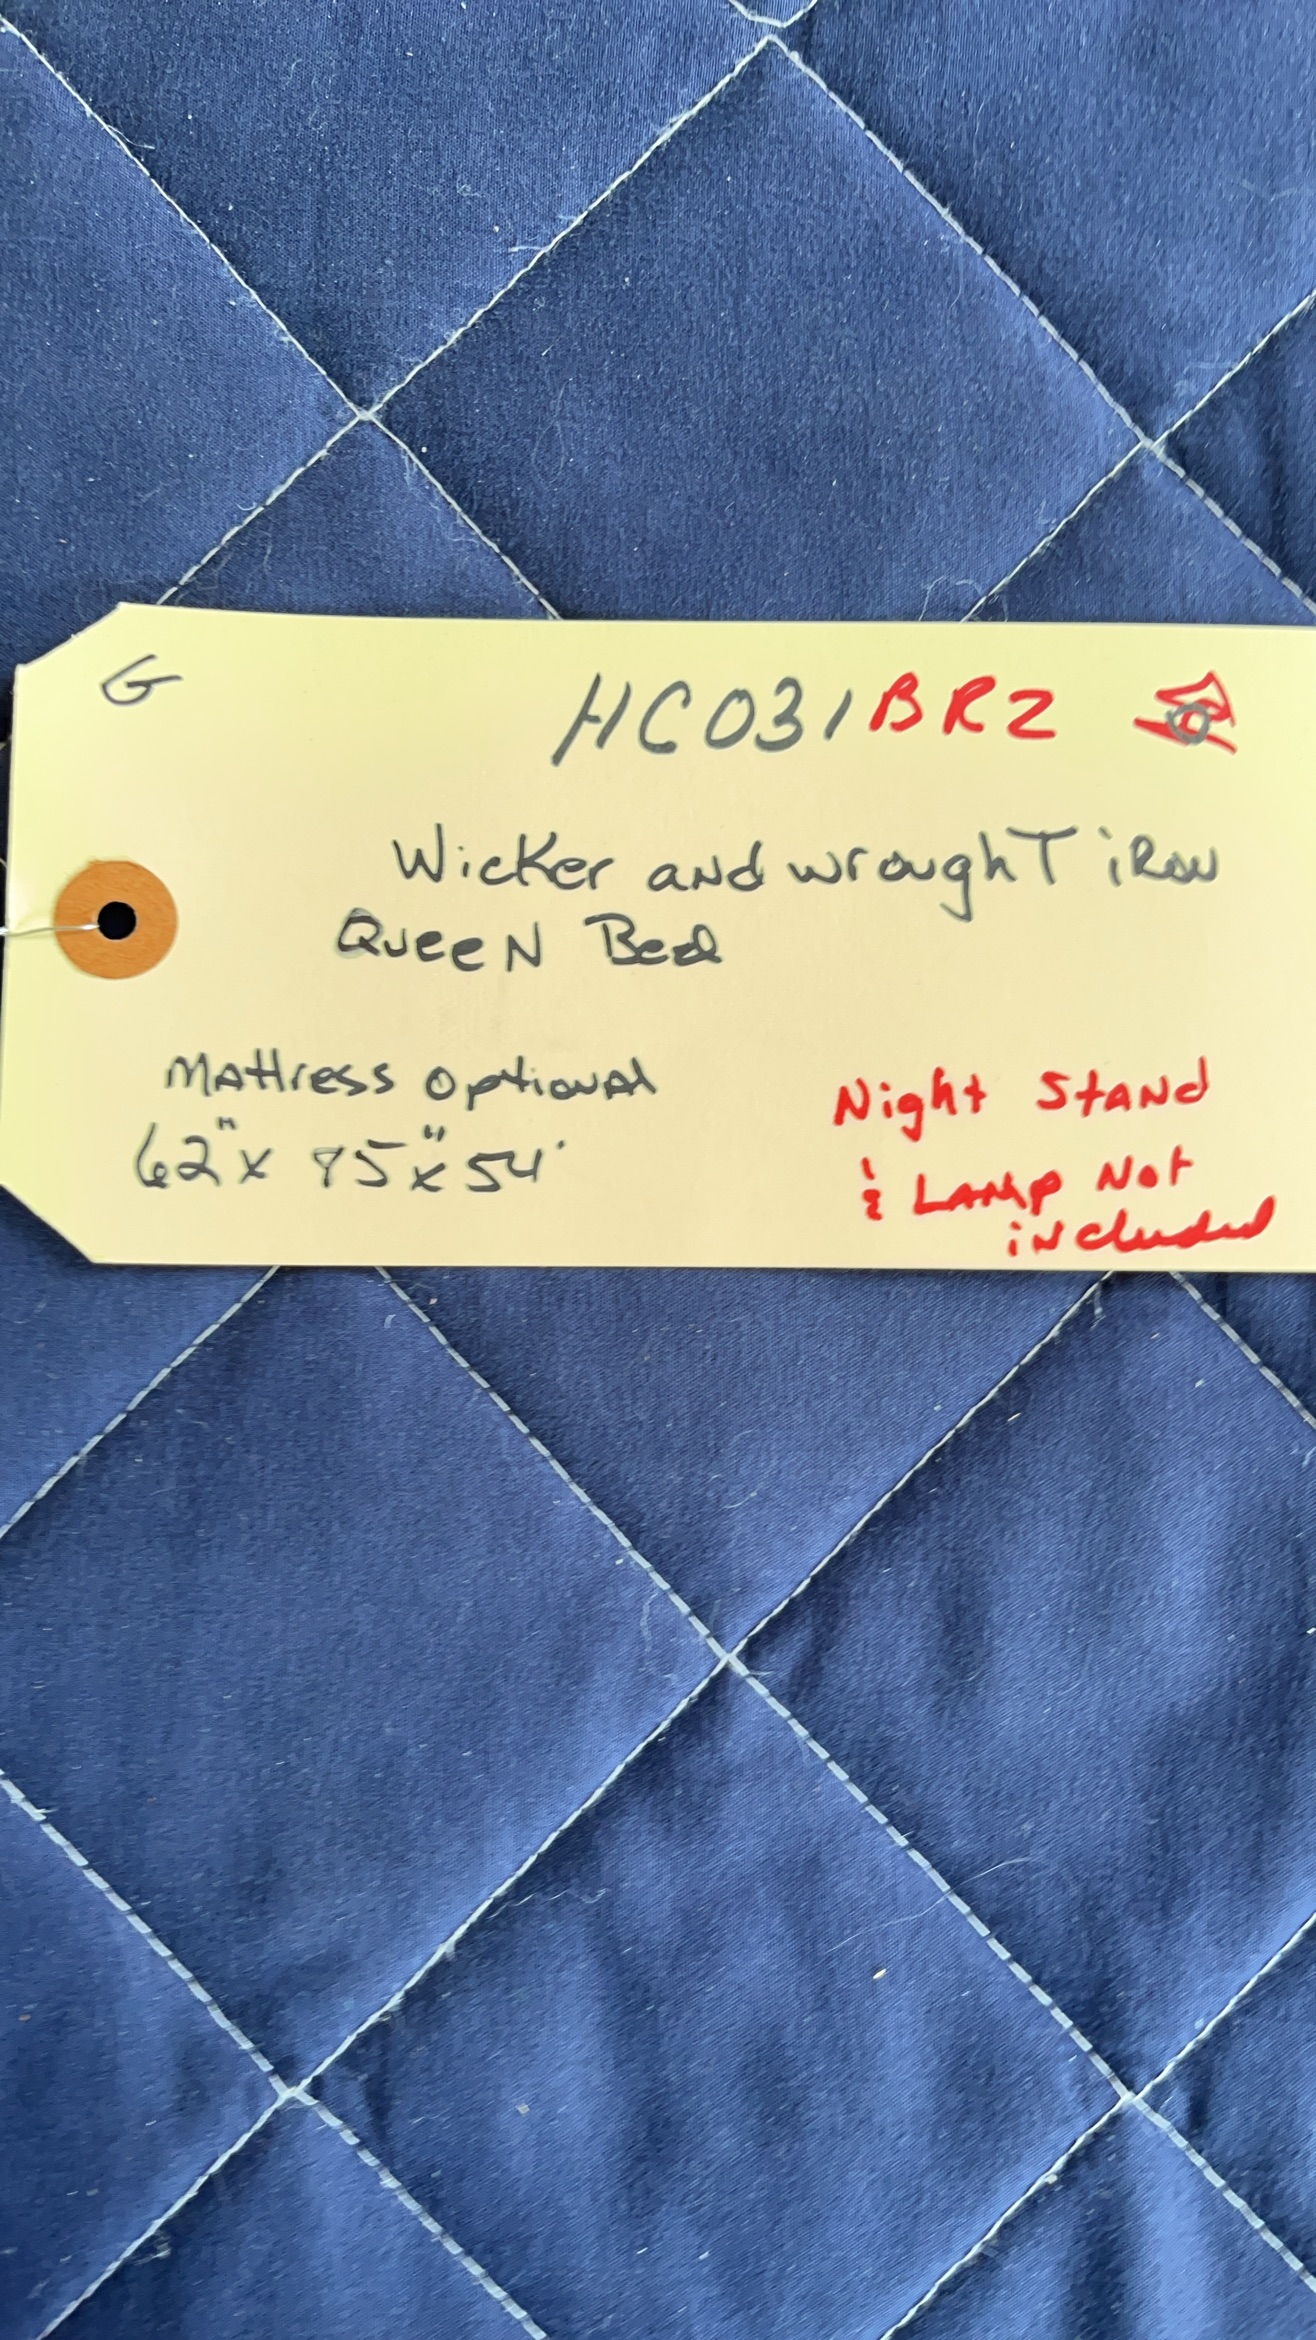 G
HC031BR2
Wicker and wrought iron
Queen Bed
Mattress optional
62" x 85" x 54"
Night Stand
& Lamp Not
included